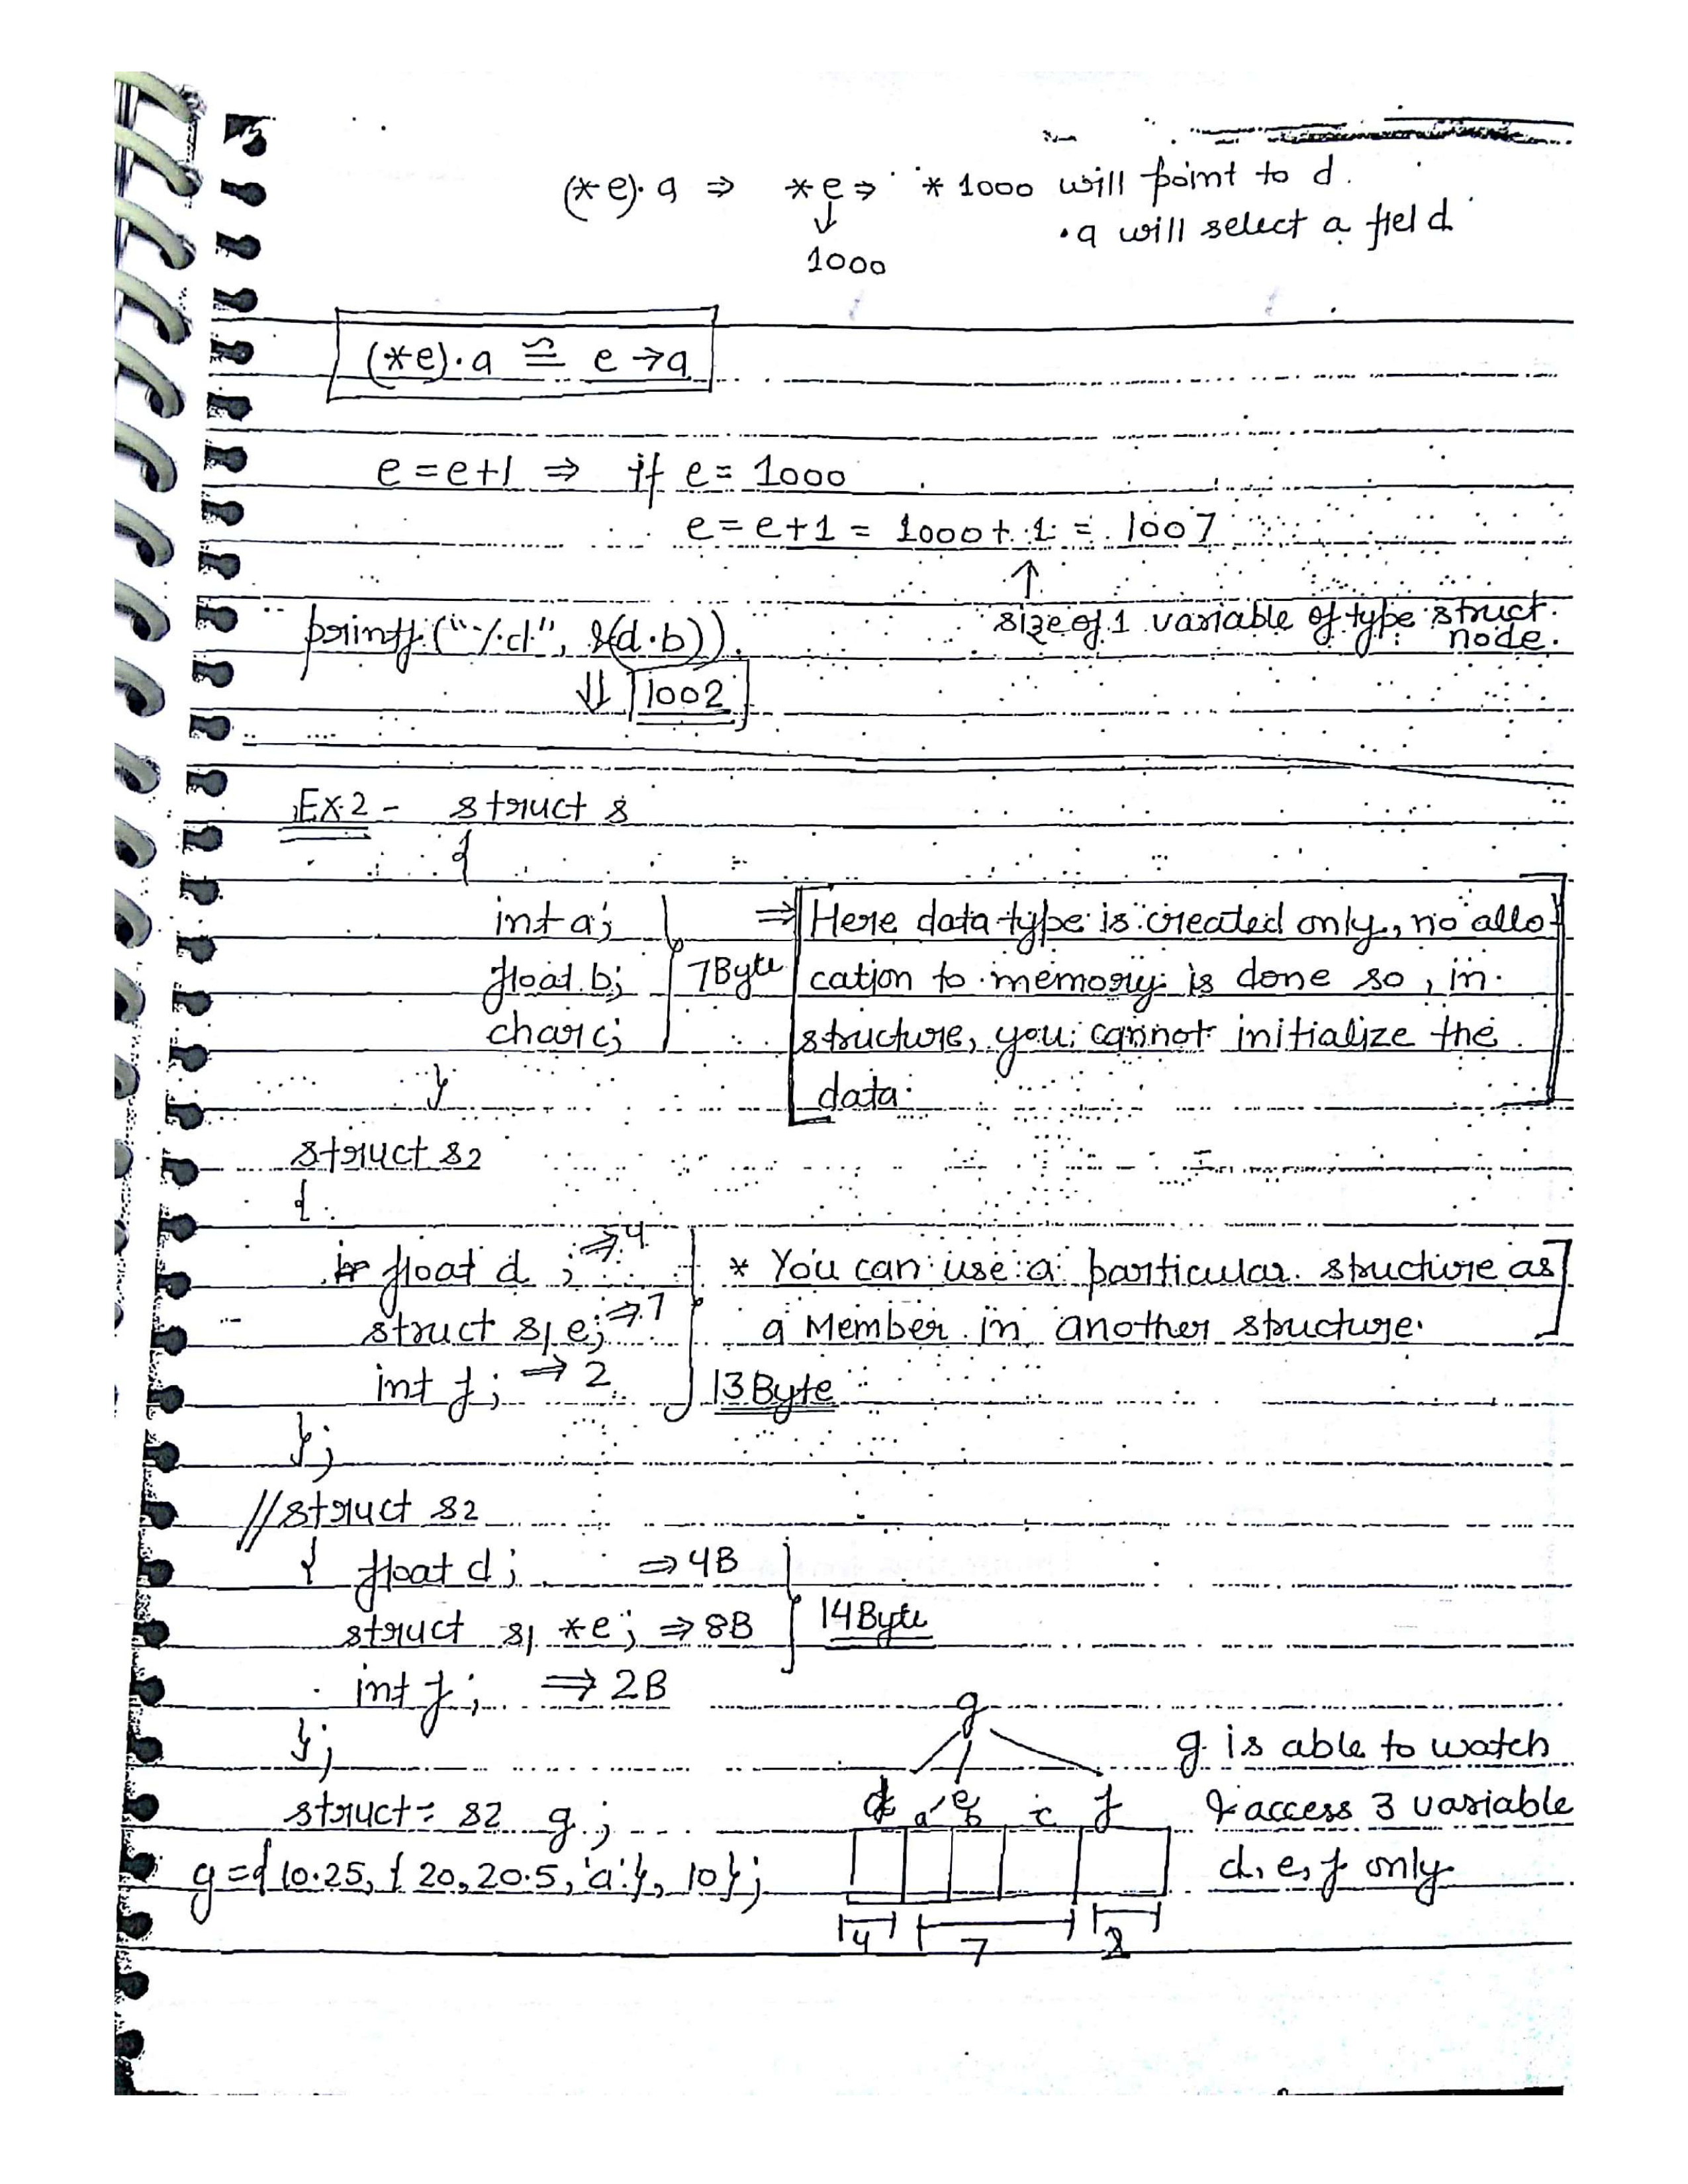 (*e).a ⇒ *e ⇒ *1000 will point to d.
↓ .a will select a field
1000
(*e).a ≅ e→a
e = e+1 ⇒ if e = 1000
e = e+1 = 1000 + 1 = 1007
↑
size of 1 variable of type struct node.
printf("%d", &(d.b)).
⇓ 1002
Ex.2 - struct s
{
int a;
float b;
char c;
7Byte
}
⇒ Here data type is created only, no allo
cation to memory is done so, in
structure, you cannot initialize the
data.
struct s2
{
float d ; ⇒ 4
struct s1 e; ⇒ 7
int f; ⇒ 2
13Byte
};
* You can use a particular structure as
a Member in another structure.
// struct s2
{ float d; ⇒ 4B
struct s1 *e; ⇒ 8B
14Byte
int f; ⇒ 2B
};
struct s2 g;
g={10.25, {20, 20.5, 'a'}, 10};
g
d e f
a b c
4 7 2
g is able to watch
& access 3 variable
d, e, f only